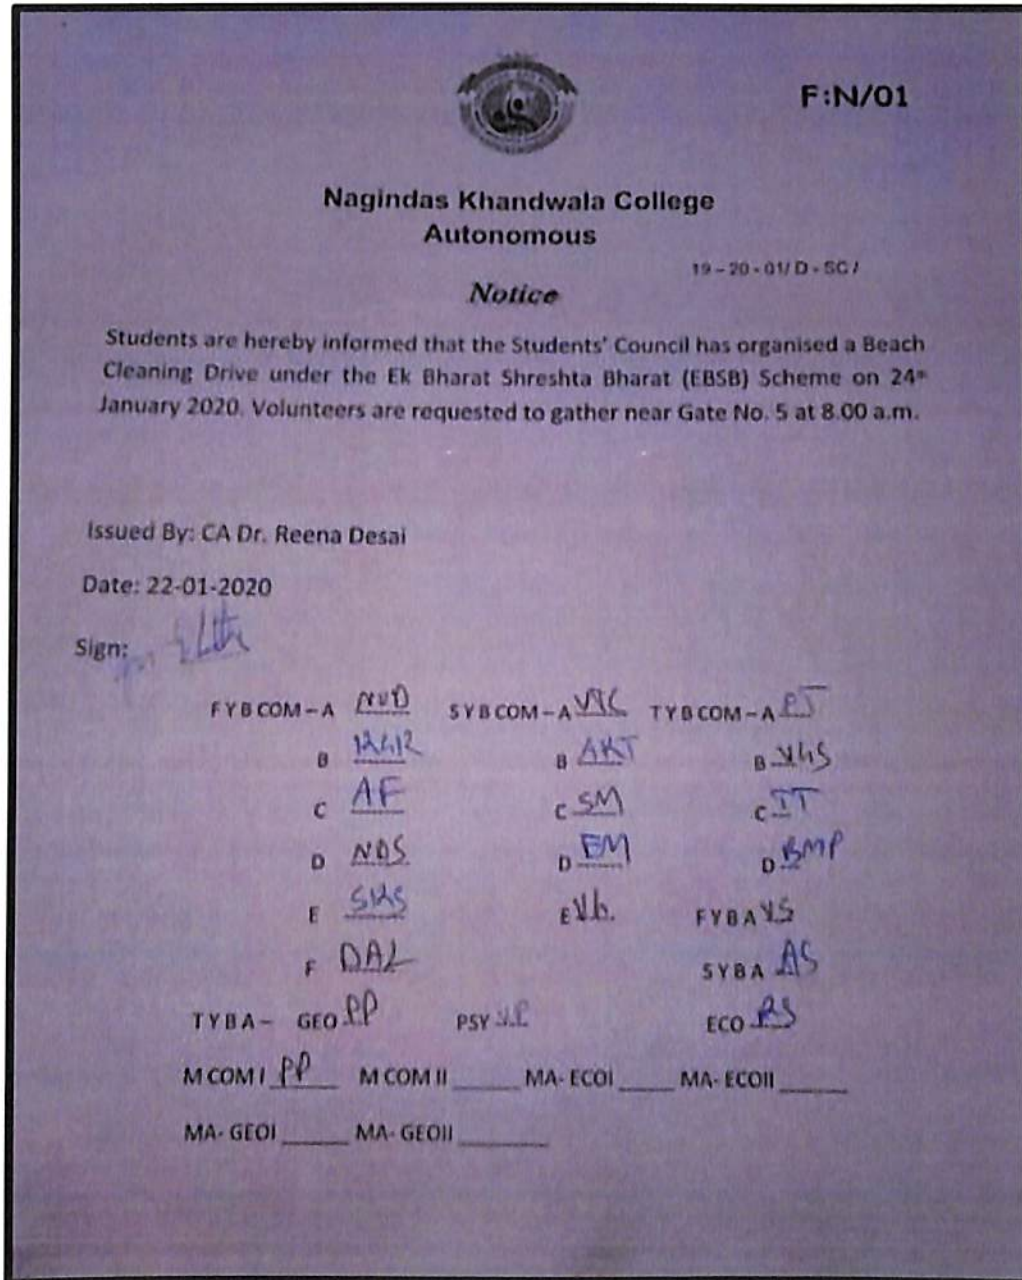 F:N/01
Nagindas Khandwala College
Autonomous
19-20-01/ D - SC /
Notice
Students are hereby informed that the Students' Council has organised a Beach
Cleaning Drive under the Ek Bharat Shreshta Bharat (EBSB) Scheme on 24th
January 2020. Volunteers are requested to gather near Gate No. 5 at 8.00 a.m.
Issued By: CA Dr. Reena Desai
Date: 22-01-2020
Sign:
FYBCOM-A SYBCOM-A TYBCOM-A PJ
B B AKT B
C AF C SM C TT
D NDS D EM D BMP
E SKS E FYBA VS
F DAL SYBA AS
TYBA- GEO PP PSY V.P ECO RS
M COM I PP M COM II MA- ECOI MA- ECOII
MA- GEOI MA- GEOII